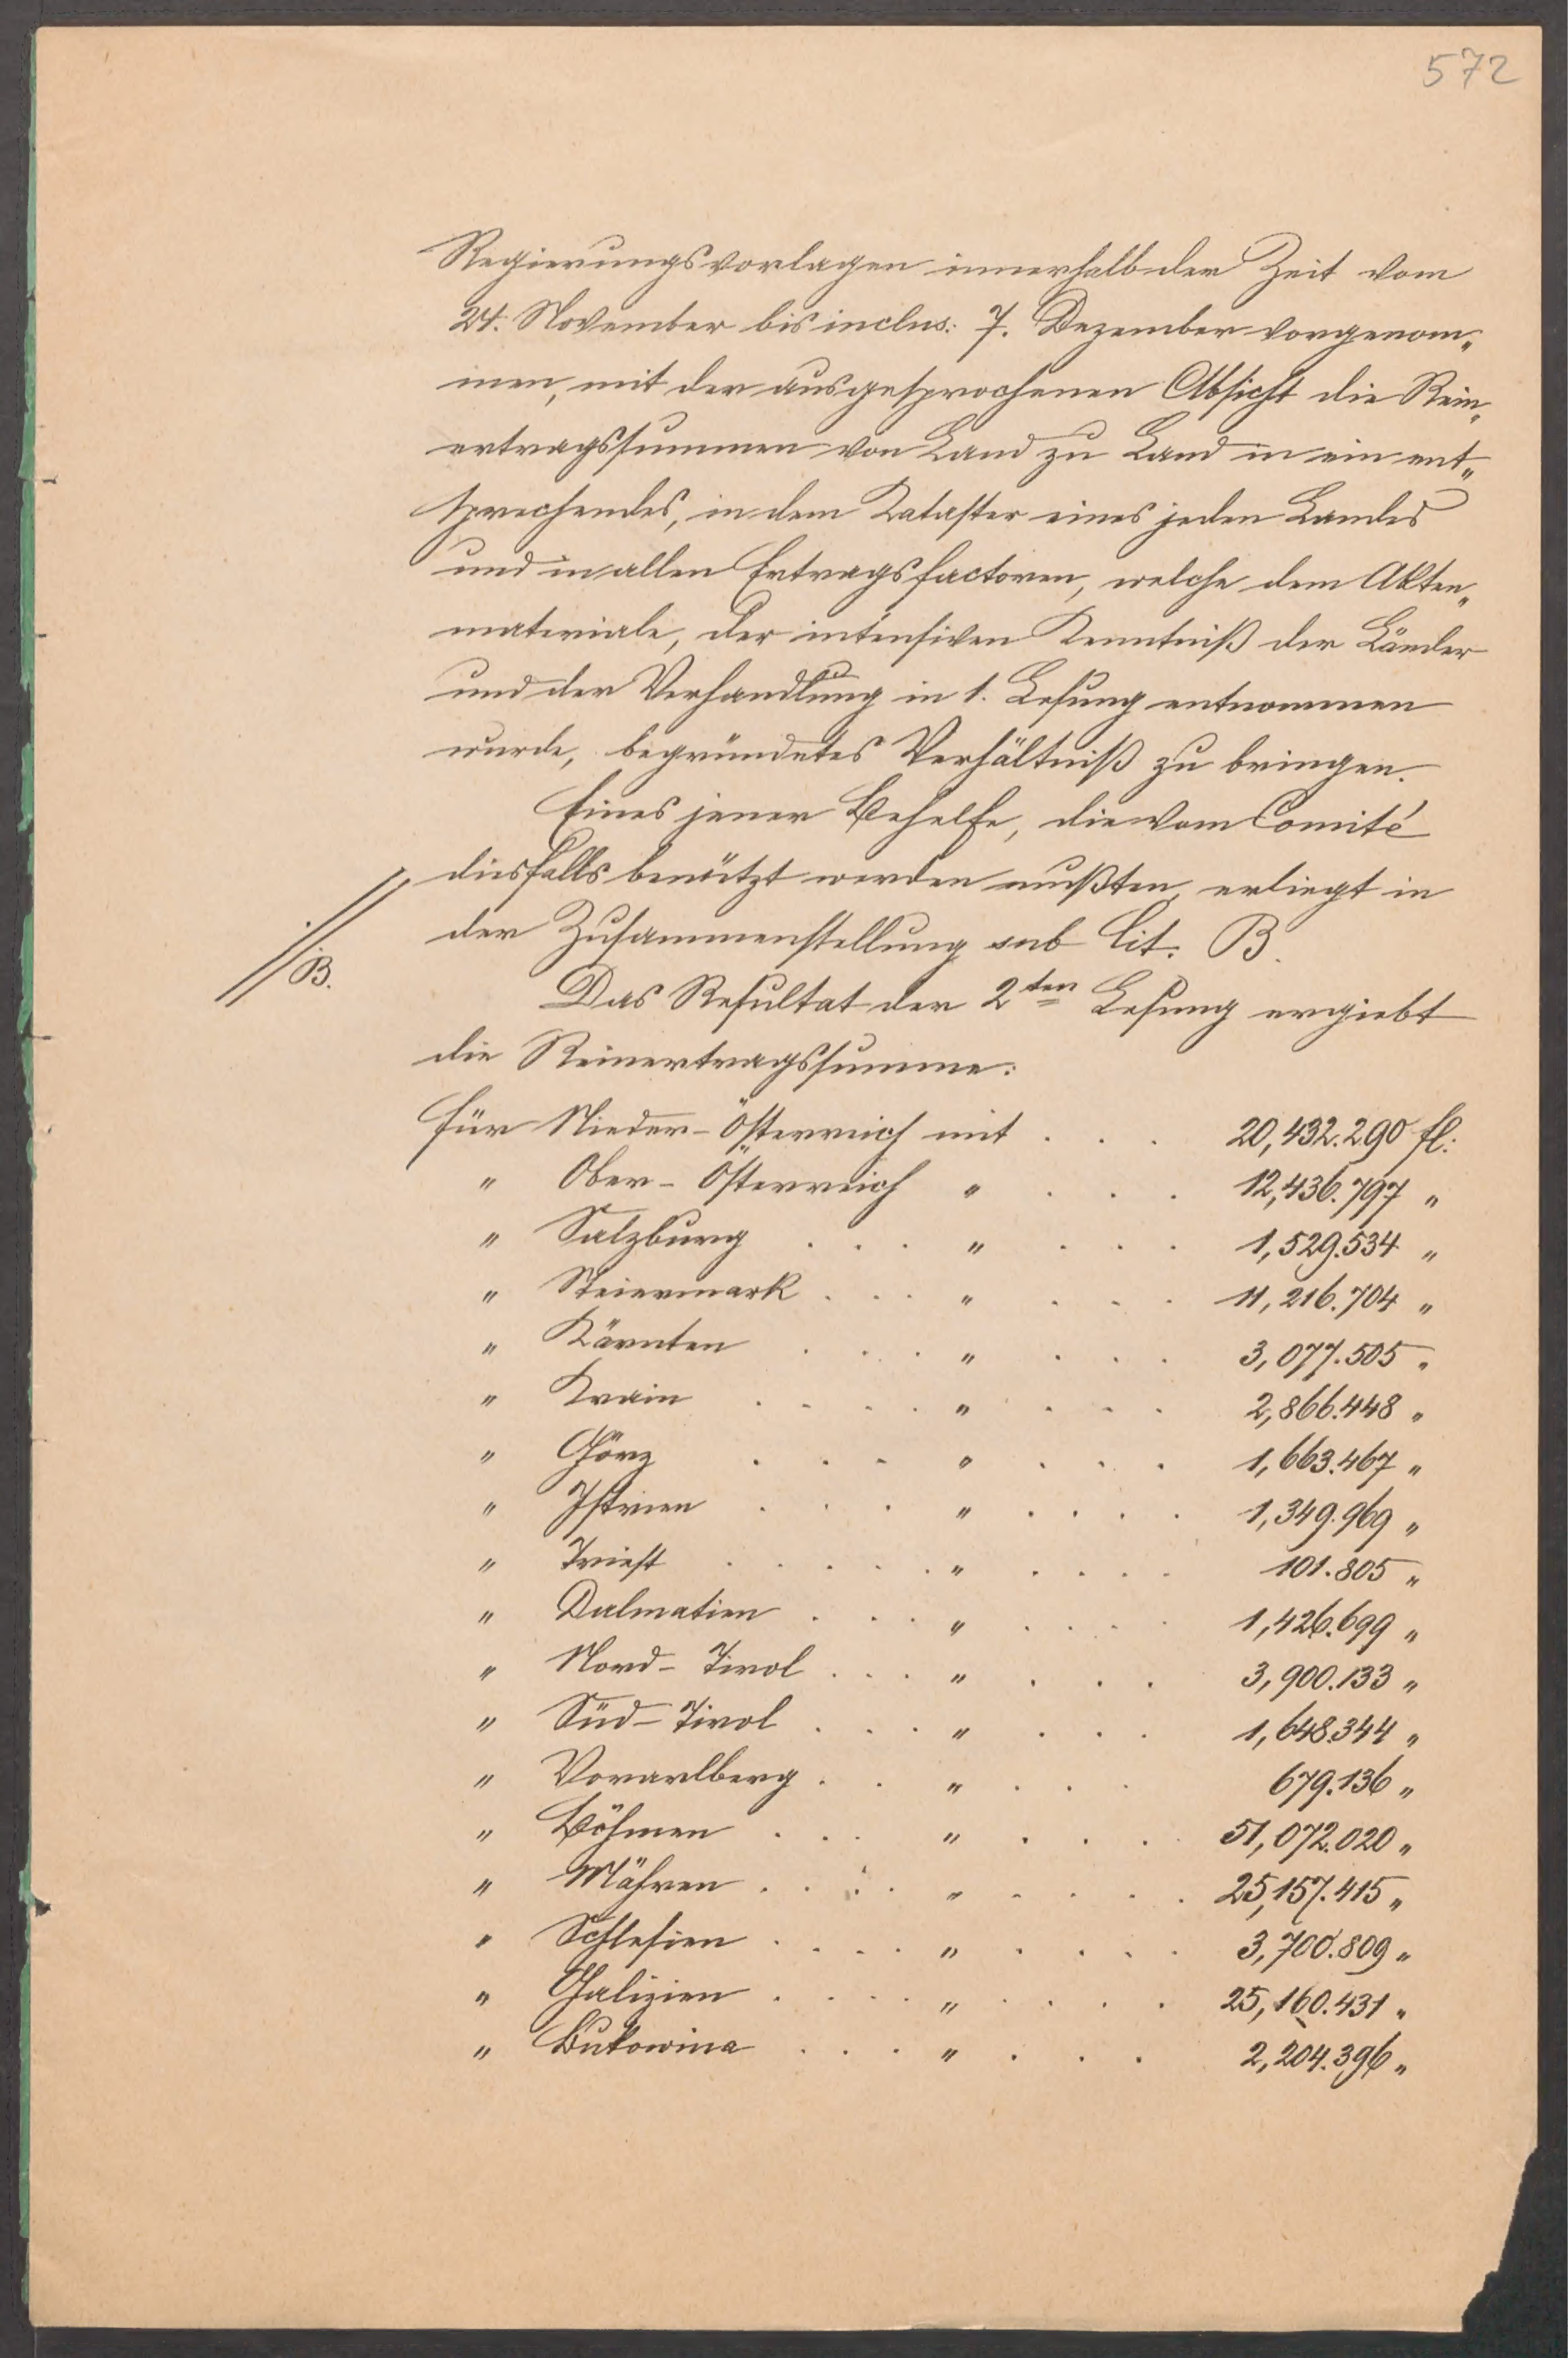 572
Regierungsvorlagen innerhalb der Zeit vom
24. November bis inclus: 7. Dezember vorgenom„
men, mit der ausgesprochenen Absicht die Rein„
ertragssummen von Land zu Land in ein ent„
sprechendes, in dem Kataster eines jeden Landes
und in allen Ertragsfactoren, welche dem Akten„
materiale, der intensiven Kenntniß der Länder
und der Verhandlung in 1. Lesung entnommen
wurde, begründetes Verhältniß zu bringen.
Eines jener Behelfe, die vom Comité
diesfalls benützt werden mußten, erliegt in
der Zusammenstellung sub Lit. B.
//B.
Das Resultat der 2ten Lesung ergiebt
die Reinertragssumme:
für Nieder-Österreich mit . . . 20,432.290 fl.
" Ober-Österreich " . . . 12,436.797 "
" Salzburg . . . " . . . 1,529.534 "
" Steiermark . . . " . . . 11,216.704 "
" Kärnten . . . " . . . 3,077.505 "
" Krain . . . . " . . . 2,866.448 "
" Görz . . . " . . . 1,663.467 "
" Istrien . . . " . . . . 1,349.969 "
" Triest . . . . . " . . . . 101.805 "
" Dalmatien . . . " . . . . 1,426.699 "
" Nord-Tirol . . . " . . . 3,900.133 "
" Süd-Tirol . . . " . . . 1,648.344 "
" Vorarlberg . . " . . . 679.136 "
" Böhmen . . . " . . . 51,072.020 "
" Mähren . . . . " . . . . 25,157.415 "
" Schlesien . . . . " . . . . 3,700.809 "
" Galizien . . . . " . . . . 25,160.431 "
" Bukowina . . . " . . . 2,204.396 "